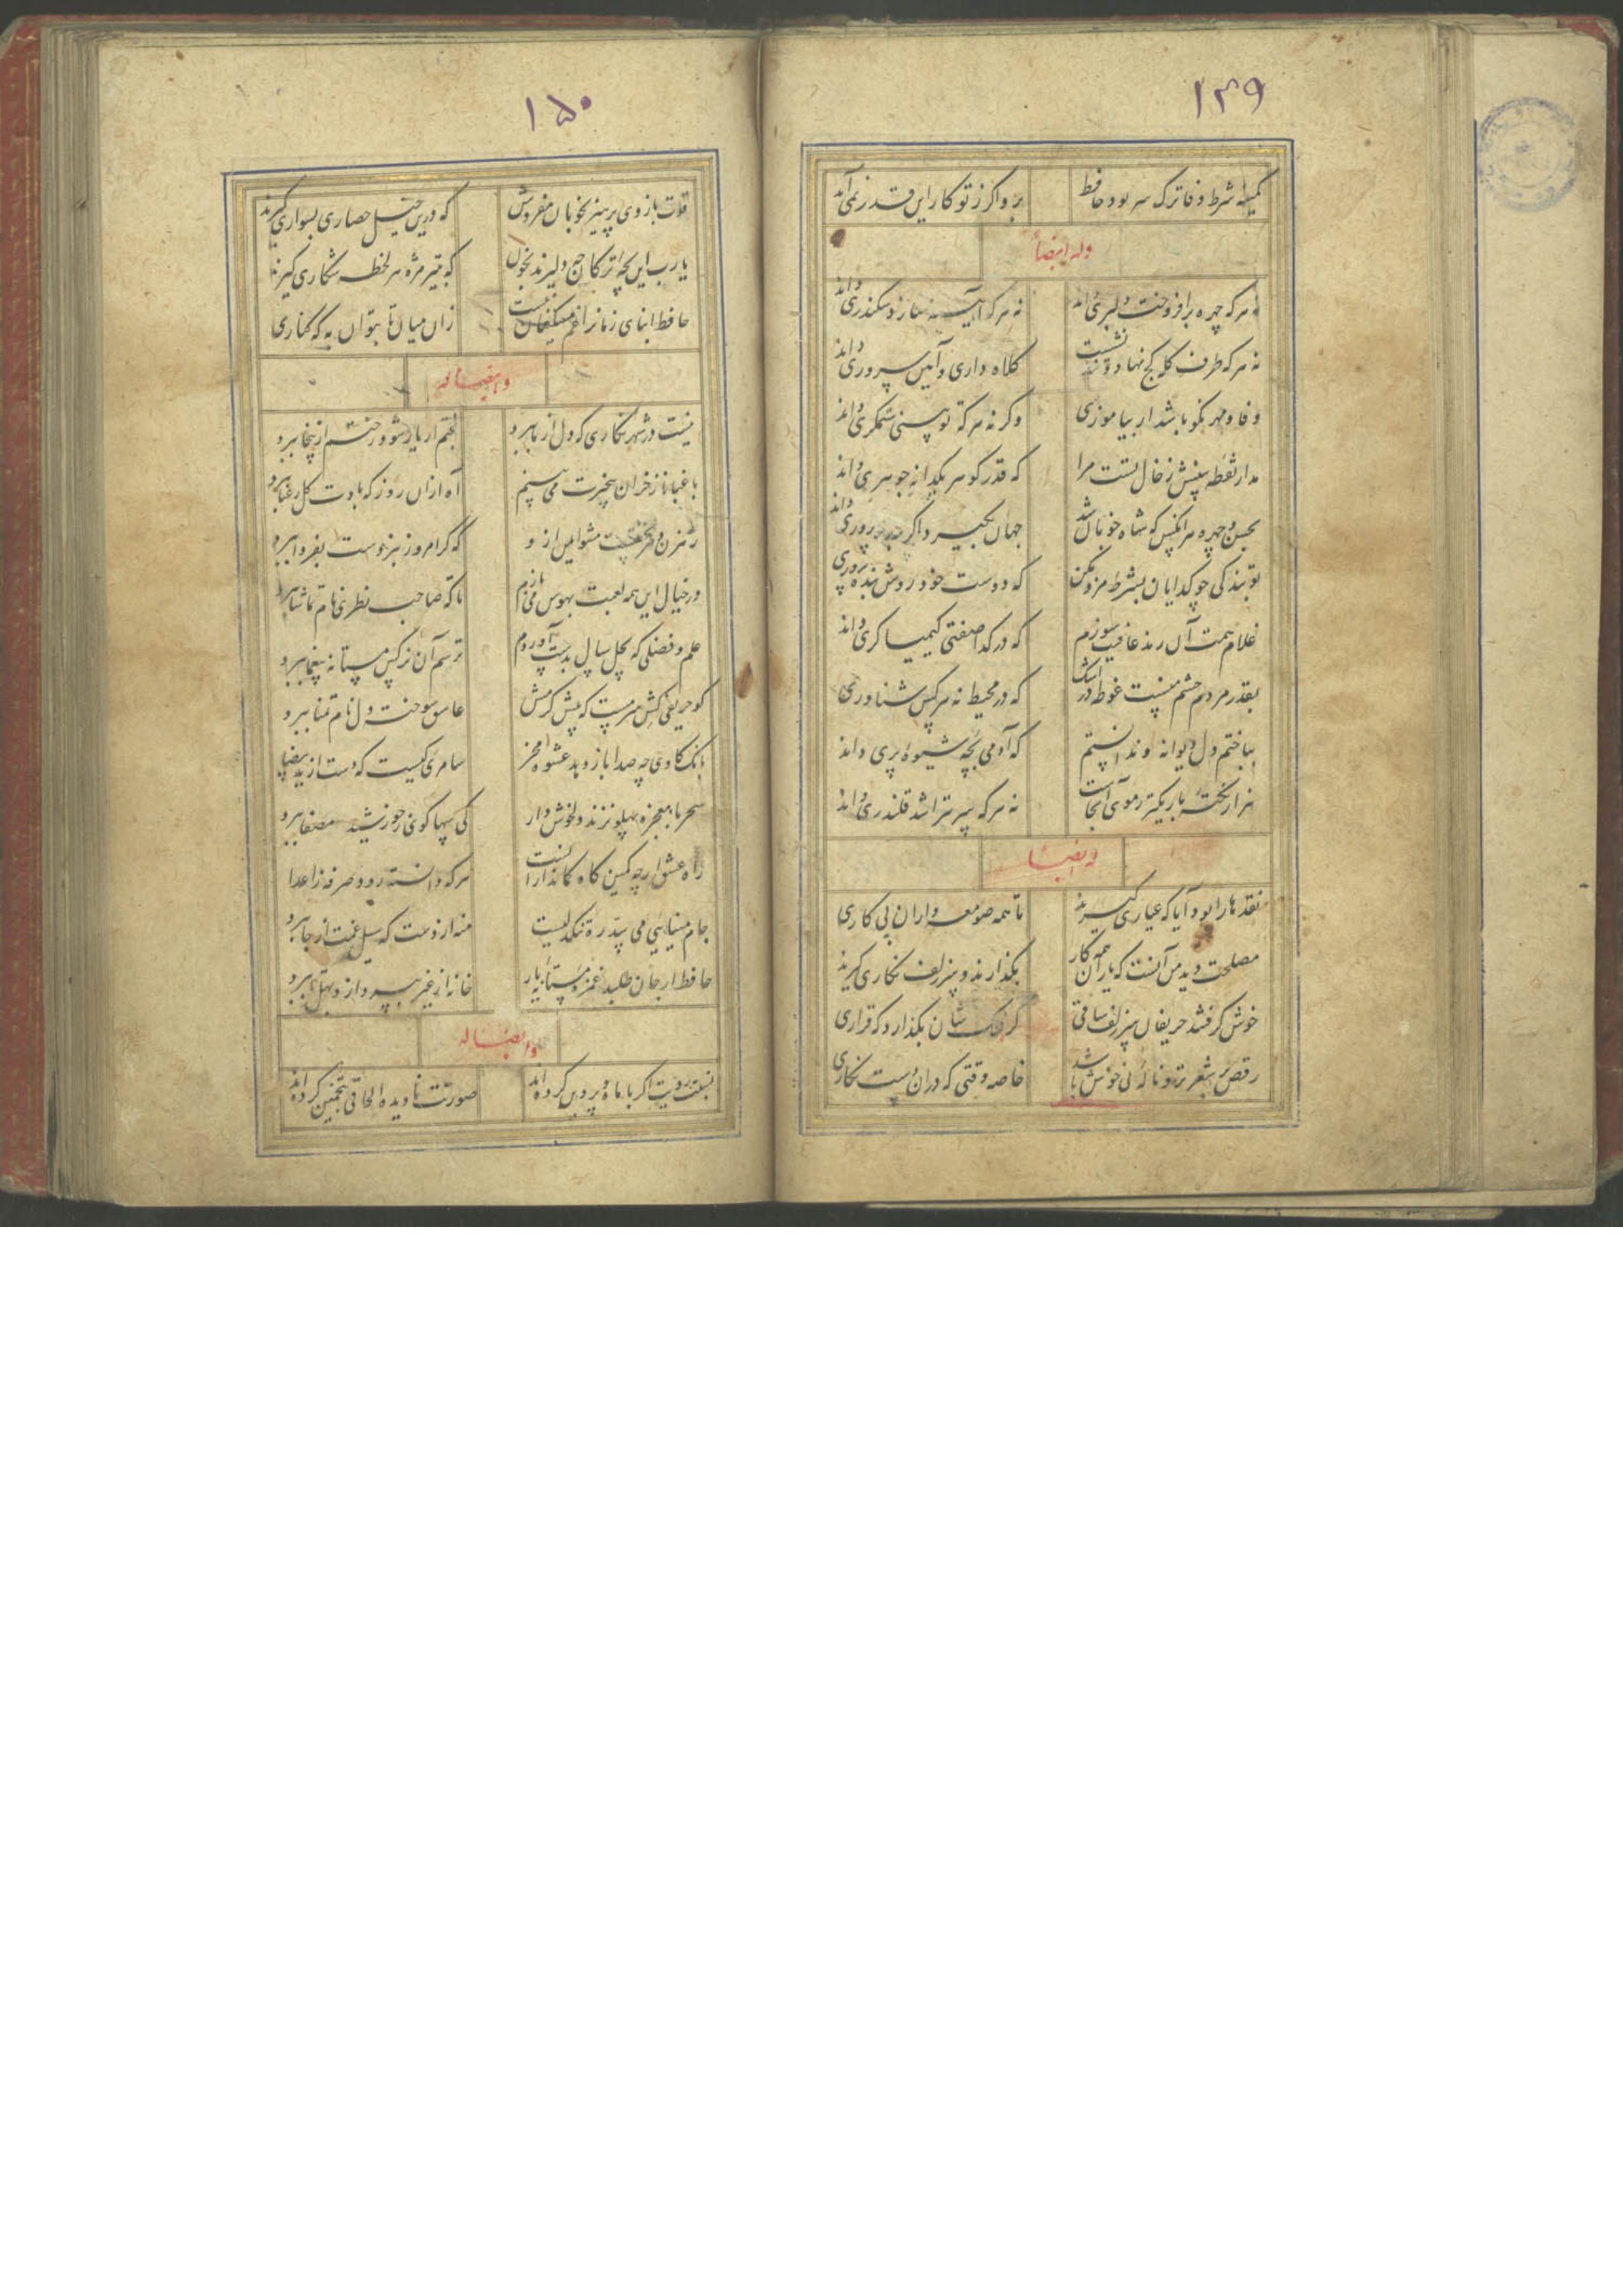 ۱۴۹
کمینه شرط وفا ترک سر بود حافظ
برو اگر ز تو کار این قدر نمی‌آید
وله ایضاً
نه هرکه چهره برافروخت دلبری داند
نه هرکه آینه سازد سکندری داند
نه هرکه طرف کله کج نهاد و تند نشست
کلاه داری و آیین سروری داند
وفا و مهر نکو باشد ار بیاموزی
وگرنه هرکه تو بینی ستمگری داند
مدار نقطه بینش ز خال تست مرا
که قدر گوهر یکدانه جوهری داند
بحسن و چهره هر آنکس که شاه خوبان شد
جهان بگیرد اگر داد پروری داند
تو بندگی چو گدایان بشرط مزد مکن
که دوست خود روش بنده پروری
غلام همت آن رند عافیت سوزم
که در گدا صفتی کیمیاگری داند
بقدر مردم چشم منست غوطه در اشک
که در محیط نه هرکس شناوری
بباختم دل دیوانه و ندانستم
که آدمی بچه شیوه پری داند
هزار نکته باریکتر ز موی آنجاست
نه هرکه سر بتراشد قلندری داند
وله ایضاً
نقدها را بود آیا که عیاری گیرند
تا همه صومعه داران پی کاری
مصلحت دید من آنست که یاران همه کار
بگذارند و سر زلف نگاری گیرند
خوش گرفتند حریفان سر زلف ساقی
گر فلک شان بگذارد که قراری
رقص بر شعر تر و ناله نی خوش باشد
خاصه وقتی که در آن دست نگاری
۱۵۰
قوت بازوی پرهیز بخوبان مفروش
که درین خیل حصاری بسواری گیرند
یا رب این بچه ترکان چه دلیرند بخون
که بتیر مژه هر لحظه شکاری گیرند
حافظ ابنای زمان را غم مسکینان نیست
زان میان تا بتوان به که کناری
وله ایضاً
نیست در شهر نگاری که دل از ما ببرد
بختم ار یار شود رختم از اینجا ببرد
باغبانا ز خزان بیخبرت می‌بینم
آه از آن روز که بادت گل رعنا ببرد
رهزن دهر نخفتست مشو ایمن از و
که گر امروز نبردست بفردا ببرد
در خیال این همه لعبت بهوس می‌بازم
تا که صاحب نظری نام تماشا ببرد
علم و فضلی که بچل سال بدست آوردم
ترسم آن نرگس مستانه بیغما ببرد
کو حریفی کش سرمست که پیش کرمش
عاشق سوخته دل نام تمنا ببرد
بانگ گاوی چه صدا باز دهد عشوه مخر
سامری کیست که دست از ید بیضا
سحر با معجزه پهلو نزند دلخوش دار
کی سها گوی ز خورشید مصفا ببرد
راه عشق ارچه کمین گاه کماندارانست
هرکه دانسته رود صرفه ز اعدا
جام مینایی می سد ره تنگدلیست
منه از دست که سیل غمت از جا ببرد
حافظ ار جان طلبد غمزه مستانه یار
خانه از غیر بپرداز و بهل تا ببرد
وله ایضاً
نسبت رویت اگر با ماه و پروین کرده‌اند
صورت نادیده الحاقی بتخمین کرده‌اند